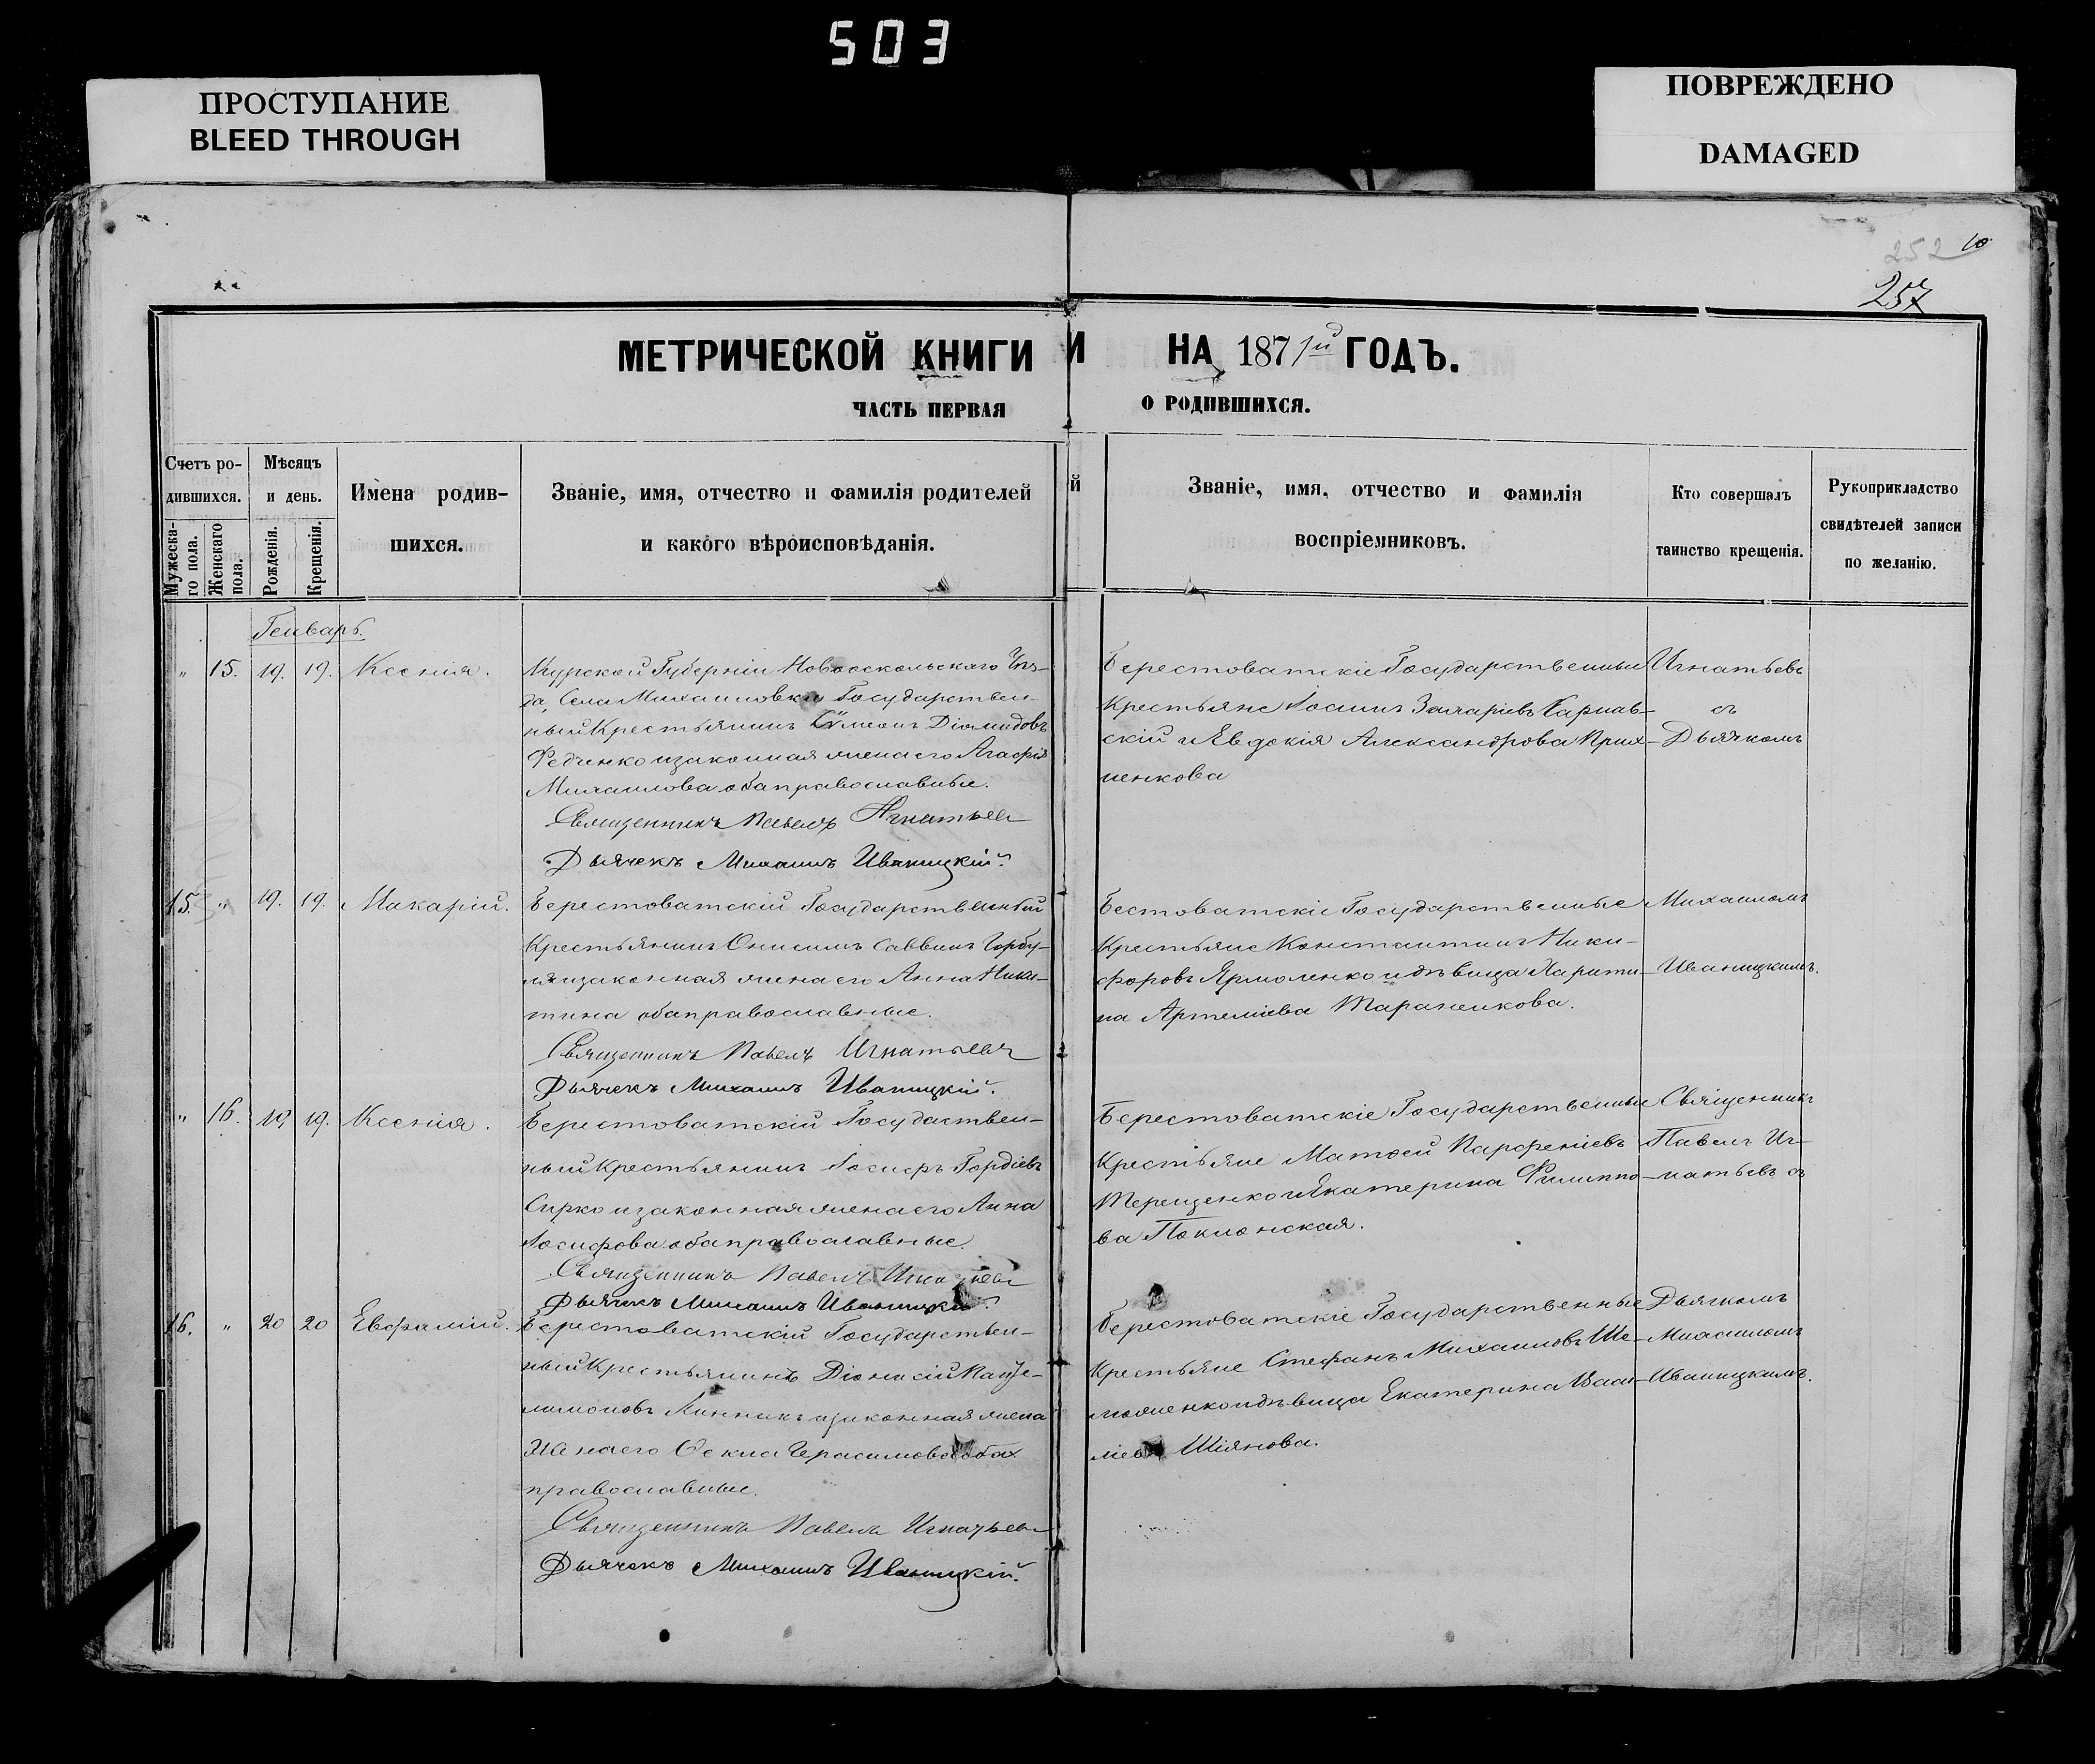 503
ПРОСТУПАНИЕ
BLEED THROUGH
ПОВРЕЖДЕНО
DAMAGED
252 10
257
МЕТРИЧЕСКОЙ КНИГИ И НА 1871й ГОДЪ.
ЧАСТЬ ПЕРВАЯ О РОДИВШИХСЯ.
Счетъ ро-
дившихся.
Мужеска-
го пола.
Женскаго
пола.
Мѣсяцъ
и день.
Рожденія.
Крещенія.
Имена родив-
шихся.
Званіе, имя, отчество и фамилія родителей
и какого вѣроисповѣданія.
й
Званіе, имя, отчество и фамилія
воспріемниковъ.
Кто совершалъ
таинство крещенія.
Рукоприкладство
свидѣтелей записи
по желанію.
Генварь.
" 15. 19. 19. Ксенія.
Курской Губерніи Новооскольскаго Уѣз-
да, Села Михаиловки Государствен-
ный Крестьянинъ Сѵмеонъ Діомидовъ
Федченко изаконная жена его Агафія
Михаилова оба православные.
Священникъ Павелъ Игнатьевъ
Дьячекъ Михаилъ Иваницкій.
Берестоватскіе Государственные
Крестьяне Іоаннъ Захаріевъ Варнав-
скій и Евдокія Александрова Прих-
ненкова
Игнатьевъ
съ
Дьячкомъ
15. " 19. 19. Макарій.
Берестоватскій Государственный
Крестьянинъ Онисимъ Саввинъ Горбу-
ля изаконная жена его Анна Ники-
тина оба православные.
Священникъ Павелъ Игнатьевъ
Дьячекъ Михаилъ Иваницкій.
Бестоватскіе Государственные
Крестьяне Константинъ Ники-
форовъ Ярмоленко и дѣвица Харити-
на Артеміева Тараненкова.
Михаиломъ
Иваницкимъ.
" 16. 19. 19. Ксенія.
Берестоватскій Государствен-
ный Крестьянинъ Іосифъ Гордіевъ
Сирко изаконная жена его Анна
Іосифова оба православные.
Священникъ Павелъ Игнатьевъ
Дьячекъ Михаилъ Иваницкій.
Берестоватскіе Государственные
Крестьяне Матѳей Парфеніевъ
Терещенко и Екатерина Филиппо-
ва Поклонская.
Священникъ
Павелъ Иг-
натьевъ съ
16. " 20 20 Евфимій.
Берестоватскій Государствен-
ный Крестьянинъ Діонисій Панте-
лимоновъ изаконная жена
жена его Герасимова оба
православные.
Священникъ Павелъ Игнатьевъ
Дьячекъ Михаилъ Иваницкій.
Берестоватскіе Государственные
Крестьяне Стефанъ Михаиловъ Ше-
и дѣвица Екатерина Васи-
ліева Шіянова.
Дьячкомъ
Михаиломъ
Иваницкимъ.